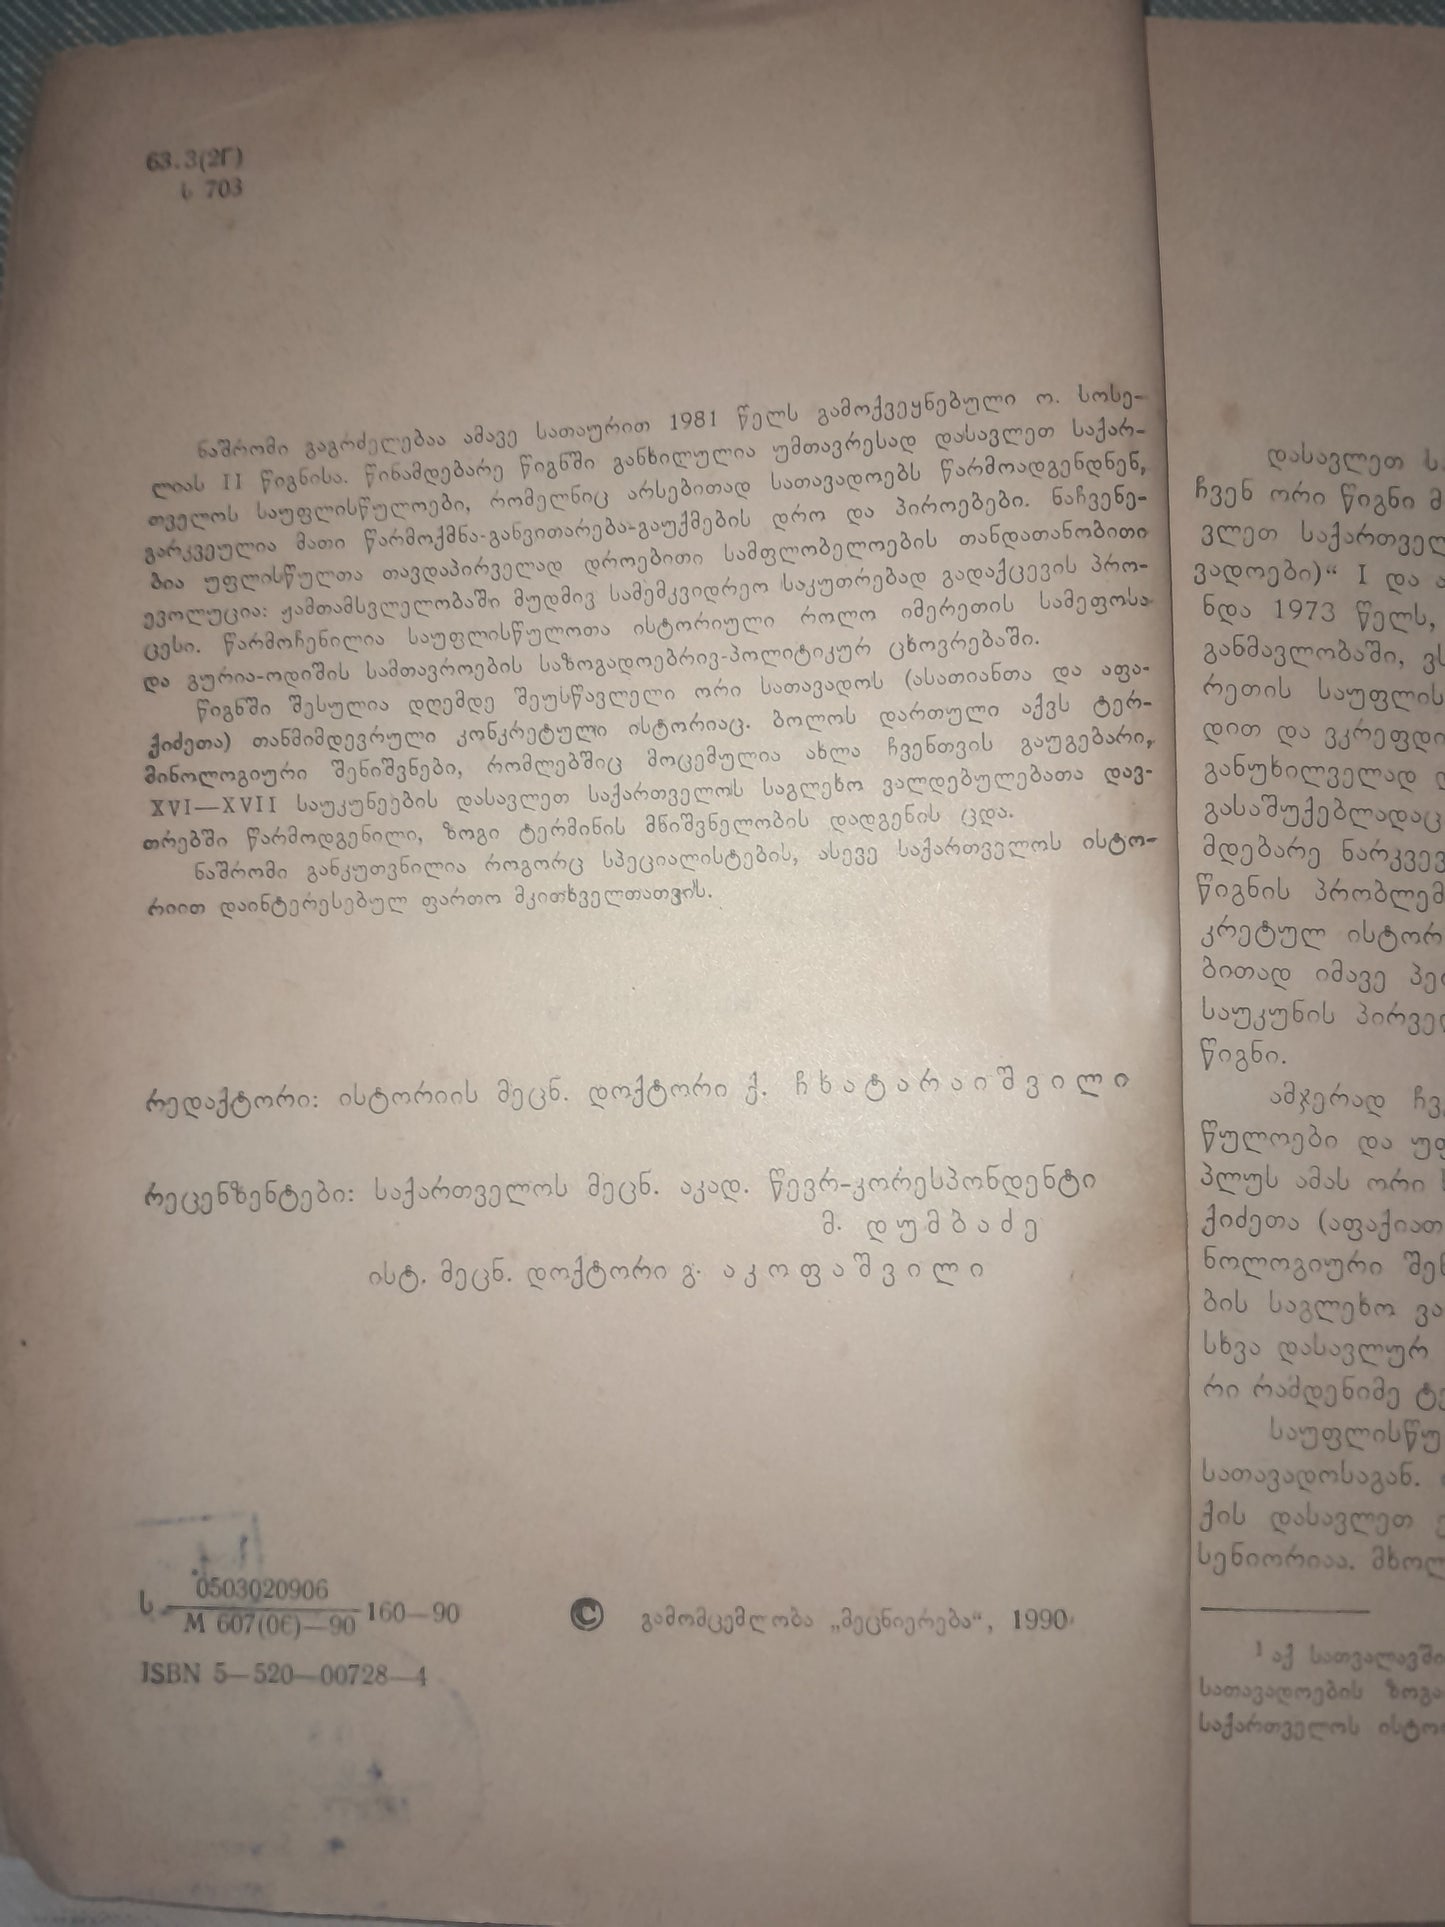 63.3(2Г)
ს 703
ნაშრომი გაგრძელებაა ამავე სათაურით 1981 წელს გამოქვეყნებული ო. სოსე-
ლიას II წიგნისა. წინამდებარე წიგნში განხილულია უმთავრესად დასავლეთ საქარ-
თველოს საუფლისწულოები, რომელნიც არსებითად სათავადოებს წარმოადგენდნენ,
გარკვეულია მათი წარმოქმნა-განვითარება-გაუქმების დრო და პიროებები. ნაჩვენე-
ბია უფლისწულთა თავდაპირველად დროებითი სამფლობელოების თანდათანობითი
ევოლუცია: ჟამთამსვლელობაში მუდმივ სამემკვიდრეო საკუთრებად გადაქცევის პრო-
ცესი. წარმოჩენილია საუფლისწულოთა ისტორიული როლი იმერეთის სამეფოსა
და გურია-ოდიშის სამთავროების საზოგადოებრივ-პოლიტიკურ ცხოვრებაში.
წიგნში შესულია დღემდე შეუსწავლელი ორი სათავადოს (ასათიანთა და აფა-
ქიძეთა) თანმიმდევრული კონკრეტული ისტორიაც. ბოლოს დართული აქვს ტერ-
მინოლოგიური შენიშვნები, რომლებშიც მოცემულია ახლა ჩვენთვის გაუგებარი,
XVI—XVII საუკუნეების დასავლეთ საქართველოს საგლეხო ვალდებულებათა დავ-
თრებში წარმოდგენილი, ზოგი ტერმინის მნიშვნელობის დადგენის ცდა.
ნაშრომი განკუთვნილია როგორც სპეციალისტების, ასევე საქართველოს ისტო-
რიით დაინტერესებულ ფართო მკითხველთათვის.
რედაქტორი: ისტორიის მეცნ. დოქტორი ქ. ჩხატარაიშვილი
რეცენზენტები: საქართველოს მეცნ. აკად. წევრ-კორესპონდენტი
მ. დუმბაძე
ისტ. მეცნ. დოქტორი გ. აკოფაშვილი
ს 0503020906
М 607(06)—90 160—90
© გამომცემლობა „მეცნიერება“, 1990
ISBN 5—520—00728—4
დასავლეთ
ჩვენ ორი წიგნი
ვლეთ
ვადოები)“ I და
ნდა 1973 წელს,
განმავლობაში,
რეთის
დით და ვკრეფდი
განუხილველად
გასაშუქებლადაც
მდებარე
წიგნის
კრეტულ
ბითად იმავე
საუკუნის
წიგნი.
ამჯერად
წულოები და
პლუს ამას ორი
ქიძეთა
ნოლოგიური
ბის საგლეხო
სხვა დასავლურ
რი რამდენიმე
სათავადოსაგან.
ქის დასავლეთ
სენიორიაა.
1 აქ სათვალავში
სათავადოების
საქართველოს